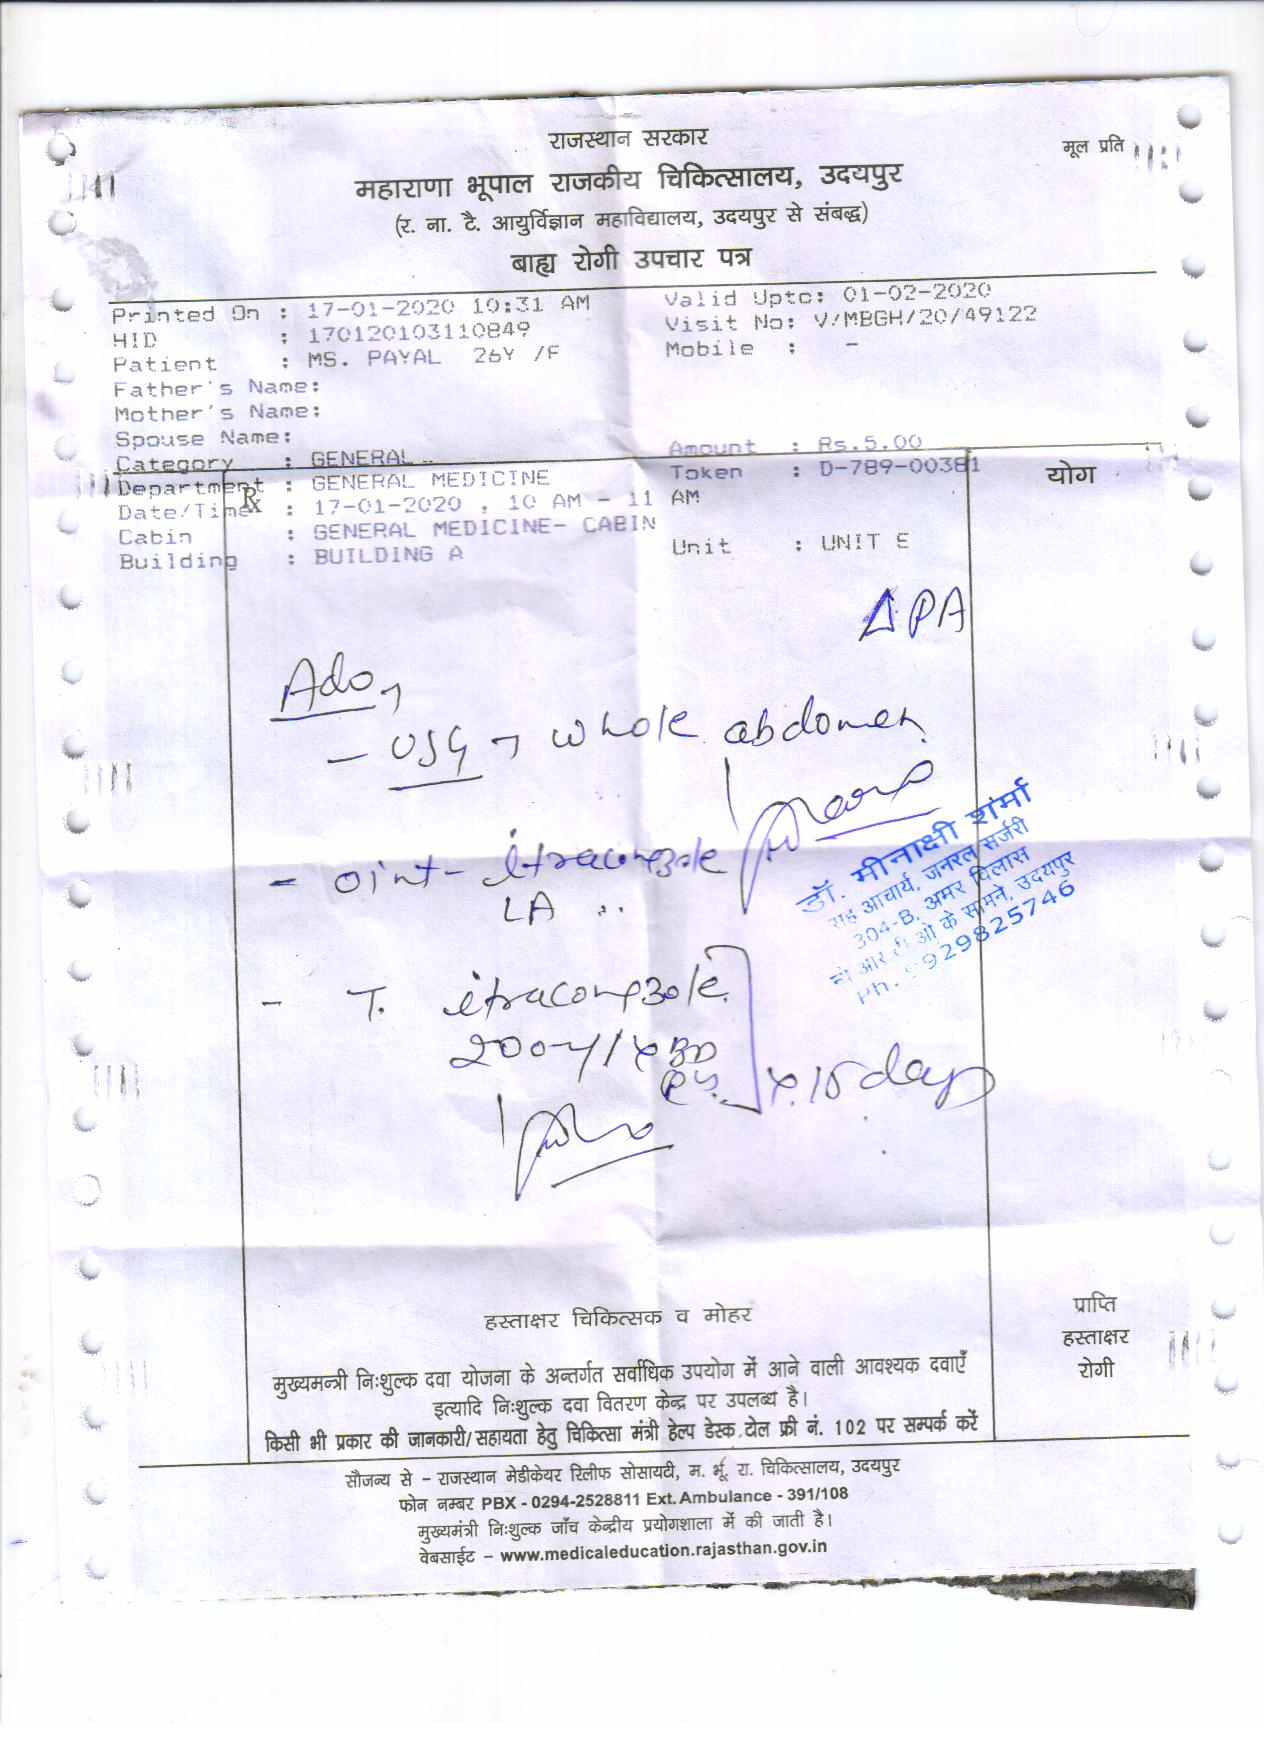 राजस्थान सरकार
मूल प्रति
महाराणा भूपाल राजकीय चिकित्सालय, उदयपुर
(र. ना. टै. आयुर्विज्ञान महाविद्यालय, उदयपुर से संबद्ध)
बाह्य रोगी उपचार पत्र
Printed On : 17-01-2020 10:31 AM Valid Upto: 01-02-2020
HID : 170120103110849 Visit No: V/MBGH/20/49122
Patient : MS. PAYAL 26Y /F Mobile : -
Father's Name:
Mother's Name:
Spouse Name:
Category : GENERAL Amount : Rs.5.00
Department : GENERAL MEDICINE Token : D-789-00381
योग
Rx
Date/Time : 17-01-2020 , 10 AM - 11 AM
Cabin : GENERAL MEDICINE- CABIN
Building : BUILDING A Unit : UNIT E
Δ PA
Ado
- USG → whole abdomen
- oint- itraconazole
LA
डॉ. मीनाक्षी शर्मा
सह आचार्य, जनरल सर्जरी
304-B, अमर विलास
आर टी ओ के सामने, उदयपुर
Ph. 9929825746
- T. itraconazole
200 BD
x 15 days
हस्ताक्षर चिकित्सक व मोहर
प्राप्ति
हस्ताक्षर
रोगी
मुख्यमन्त्री निःशुल्क दवा योजना के अन्तर्गत सर्वाधिक उपयोग में आने वाली आवश्यक दवाएँ
इत्यादि निःशुल्क दवा वितरण केन्द्र पर उपलब्ध है।
किसी भी प्रकार की जानकारी/सहायता हेतु चिकित्सा मंत्री हेल्प डेस्क टोल फ्री नं. 102 पर सम्पर्क करें
सौजन्य से - राजस्थान मेडीकेयर रिलीफ सोसायटी, म. भू. रा. चिकित्सालय, उदयपुर
फोन नम्बर PBX - 0294-2528811 Ext. Ambulance - 391/108
मुख्यमंत्री निःशुल्क जाँच केन्द्रीय प्रयोगशाला में की जाती है।
वेबसाईट - www.medicaleducation.rajasthan.gov.in